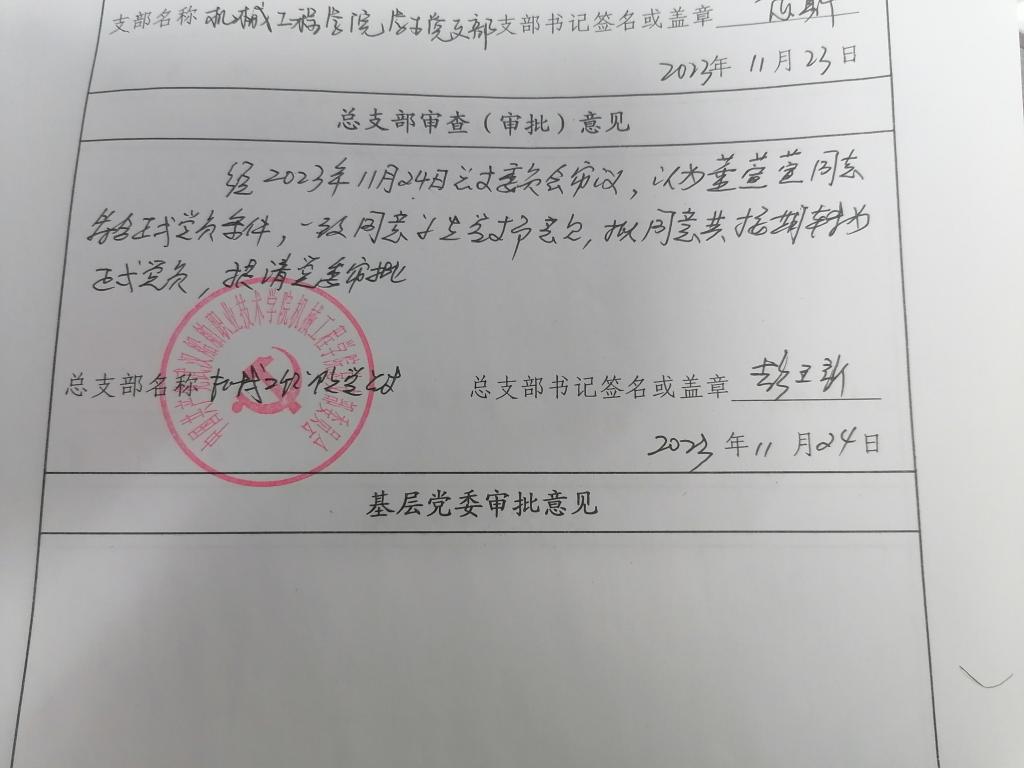 支部名称 机械工程学院学生党支部 支部书记签名或盖章
2023年 11月 23日
总支部审查（审批）意见
经2023年11月24日总支委员会审议，认为董萱萱同志
符合正式党员条件，一致同意
拟同意其按期转为
正式党员，提请党委审批
总支部名称 机械工程学院党总支 总支部书记签名或盖章
2023 年 11 月 24 日
基层党委审批意见